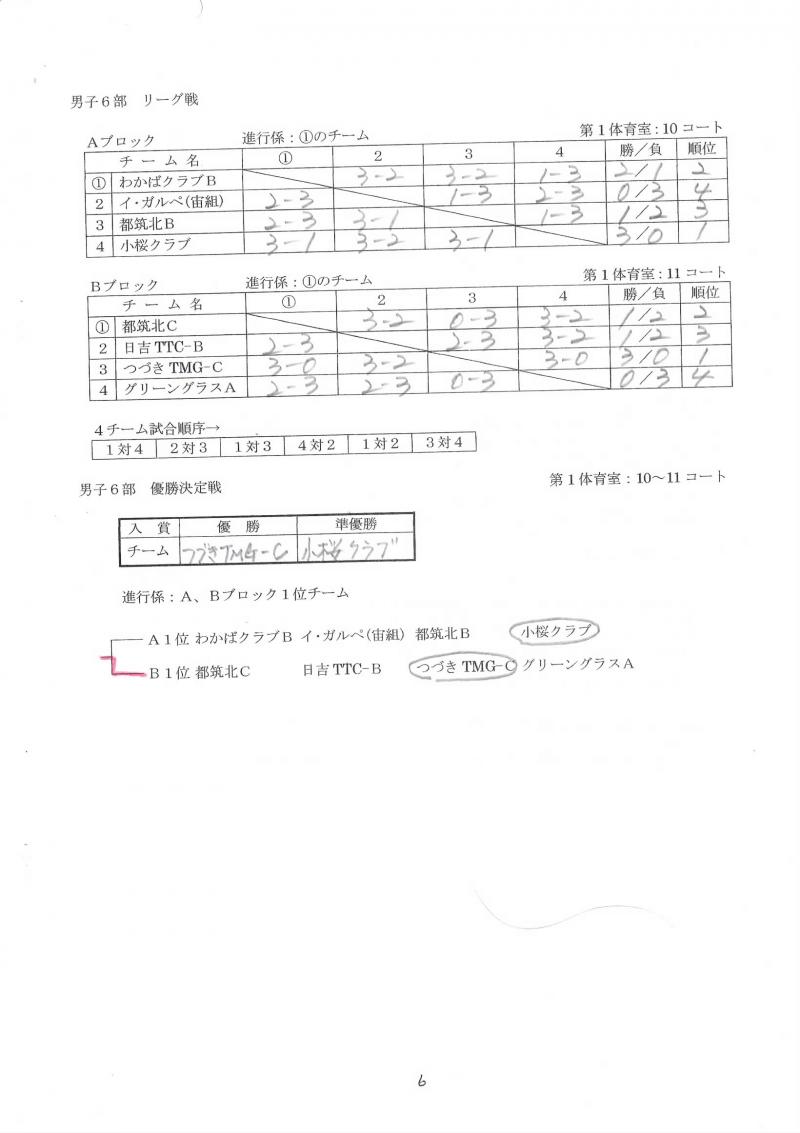 男子６部　リーグ戦
Ａブロック　進行係：①のチーム　第１体育室：10コート
チ ー ム 名　①　2　3　4　勝／負　順位
①　わかばクラブＢ　3-2　3-2　1-3　2/1　2
2　イ・ガルペ（宙組）　2-3　1-3　2-3　0/3　4
3　都筑北Ｂ　2-3　3-1　1-3　1/2　3
4　小桜クラブ　3-1　3-2　3-1　3/0　1
Ｂブロック　進行係：①のチーム　第１体育室：11コート
チ ー ム 名　①　2　3　4　勝／負　順位
①　都筑北Ｃ　3-2　0-3　3-2　1/2　2
2　日吉TTC-Ｂ　2-3　2-3　3-2　1/2　3
3　つづきTMG-Ｃ　3-0　3-2　3-0　3/0　1
4　グリーングラスＡ　2-3　2-3　0-3　0/3　4
４チーム試合順序→
１対４　２対３　１対３　４対２　１対２　３対４
男子６部　優勝決定戦　第１体育室：10～11コート
入　賞　優　勝　準優勝
チーム　つづきTMG-C　小桜クラブ
進行係：Ａ、Ｂブロック１位チーム
Ａ１位 わかばクラブＢ イ・ガルペ（宙組） 都筑北Ｂ　小桜クラブ
Ｂ１位 都筑北Ｃ　日吉TTC-Ｂ　つづきTMG-Ｃ グリーングラスＡ
6